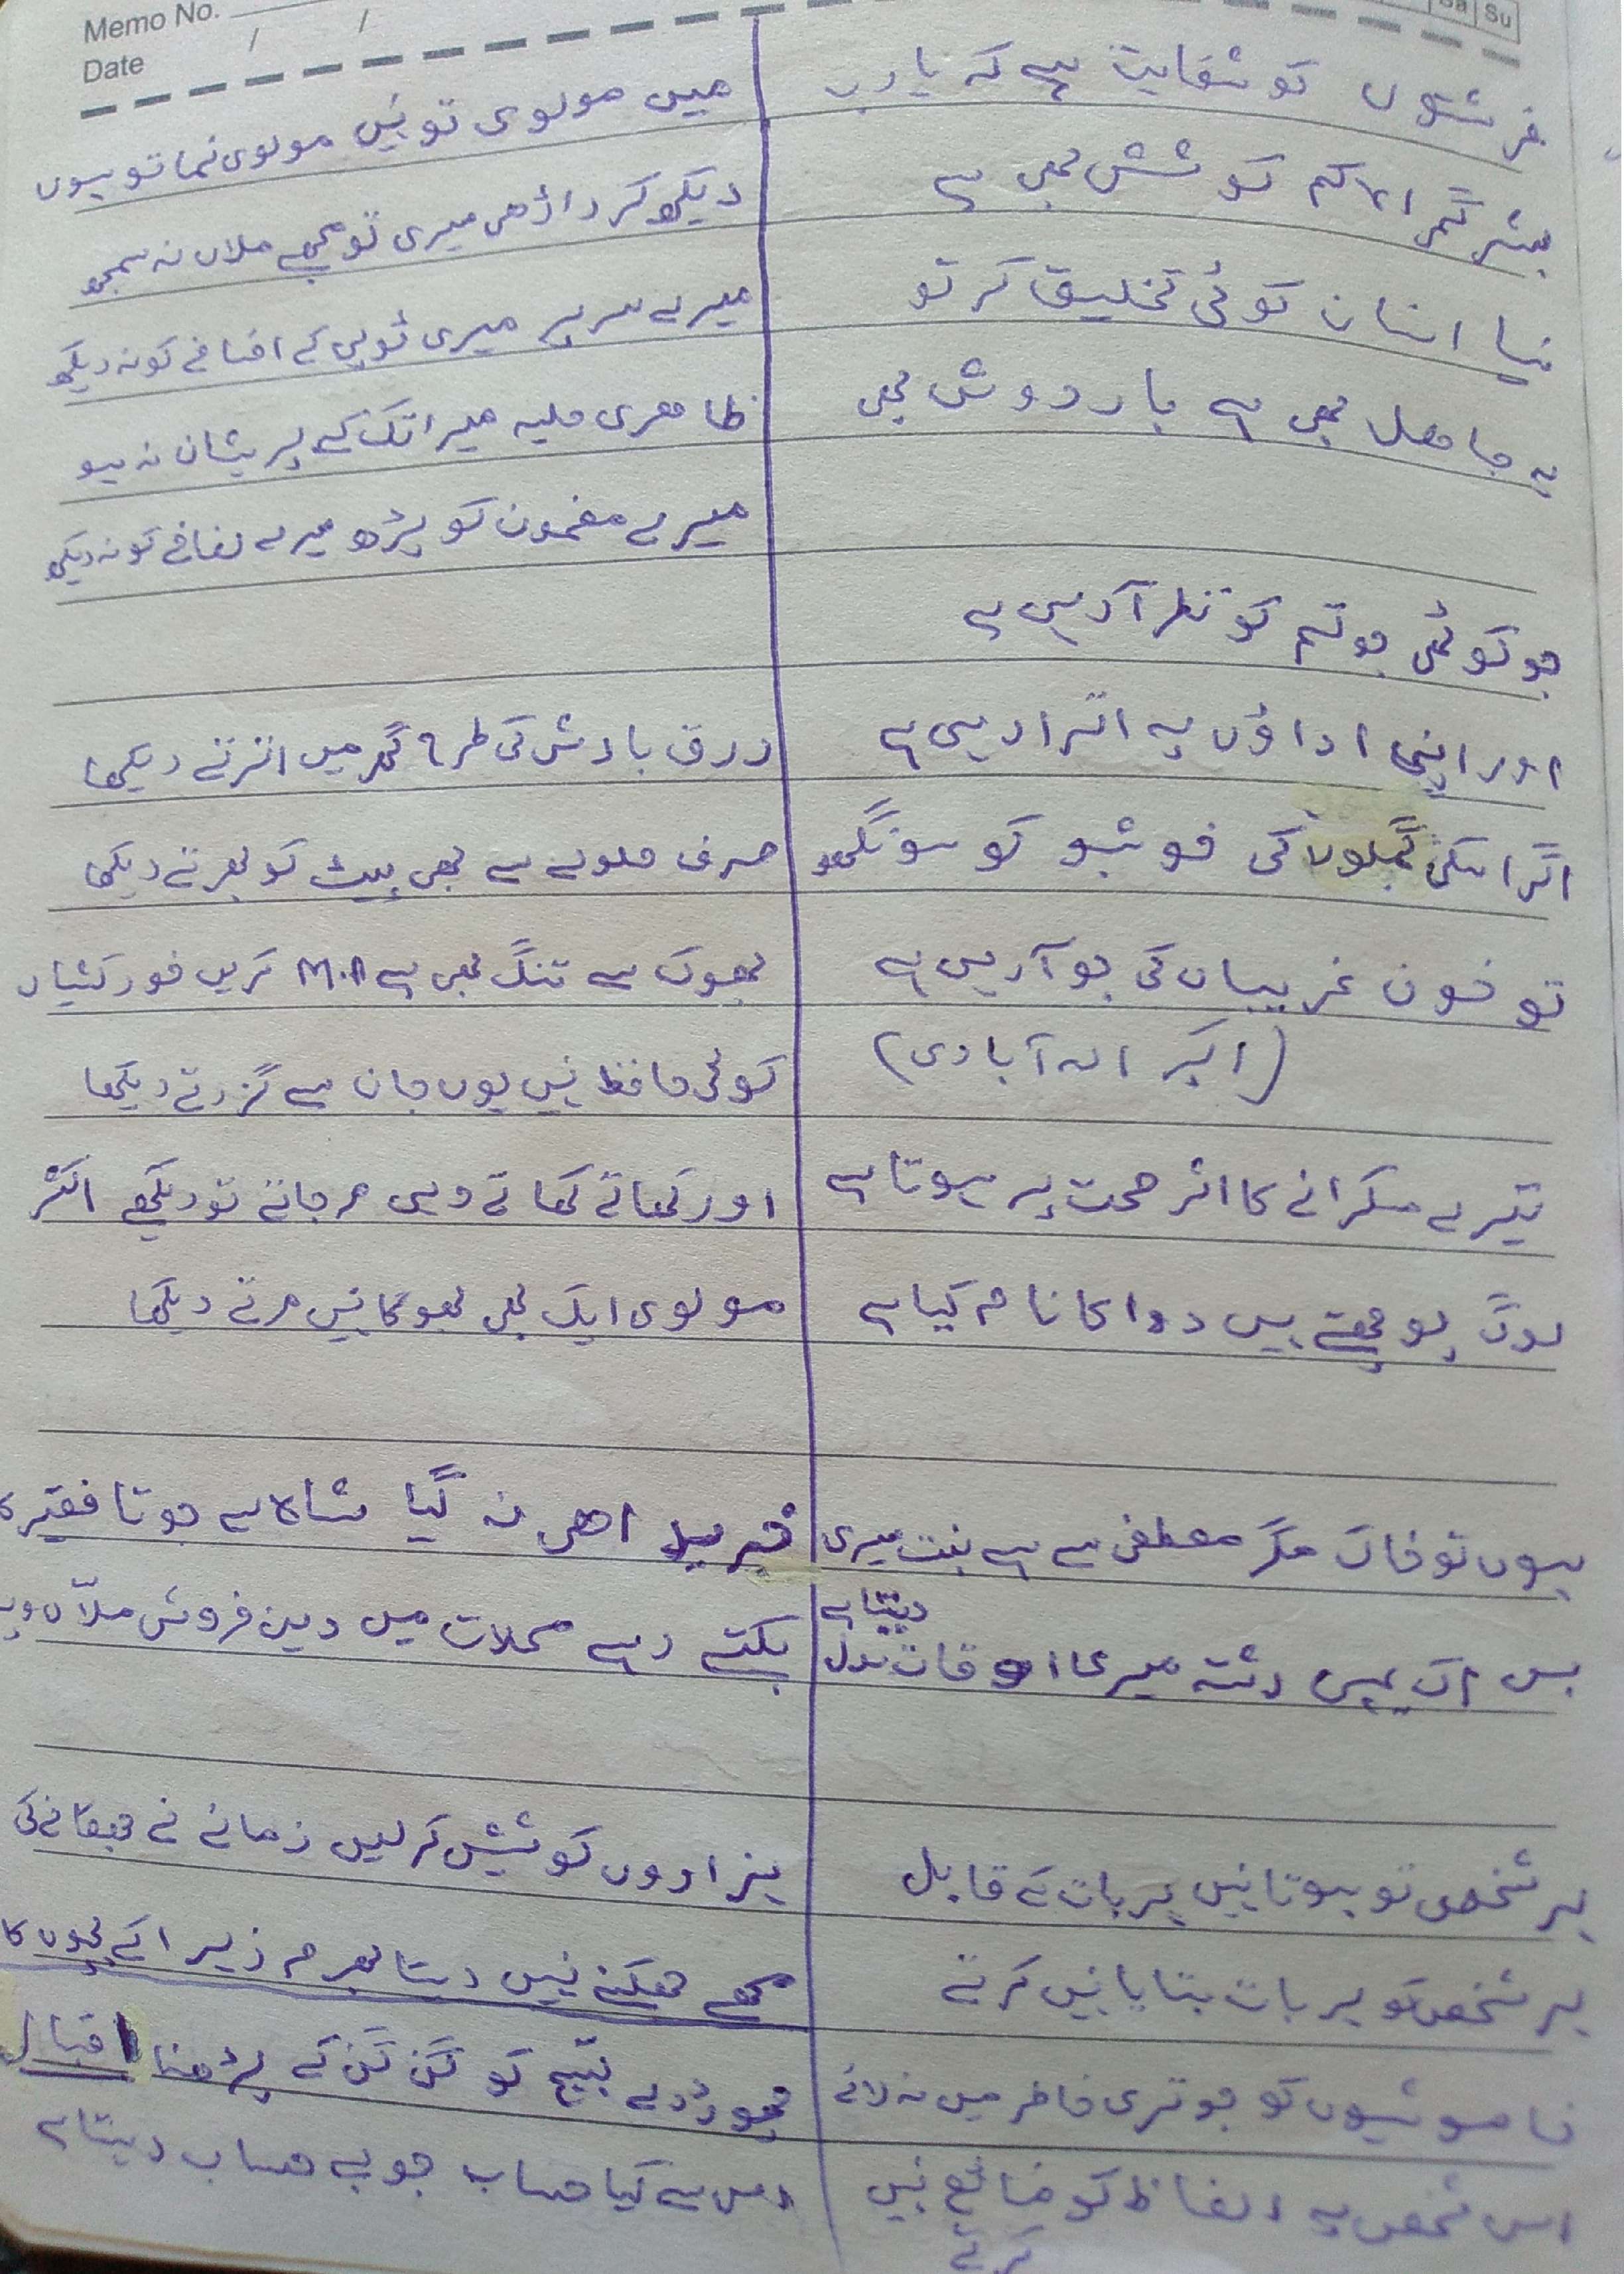 Memo No.
Date / /
Sa Su
فرشتوں کو شکایت ہے کہ یارب
بشر گمراہ کم کوشش بھی ہے
نیا انسان کوئی تخلیق کر تو
یہ جاھل بھی ہے بار دوش بھی
جو کوٹھی جو تم کو نظر آ رہی ہے
اور اپنی اداؤں پہ اترا رہی ہے
اگر اسکی گملوں کی خوشبو کو سونگھو
تو خون غریباں کی بو آ رہی ہے
(اکبر الہ آبادی)
تیرے مسکرانے کا اثر صحت پر ہوتا ہے
لوگ پوچھتے ہیں دوا کا نام کیا ہے
ہوں تو خاک مگر مصطفی سے ہے نسبت میری
بس اک یہی رشتہ میری اوقات بدل دیتا ہے
ہر شخص تو ہوتا نہیں ہر بات کے قابل
ہر شخص کو ہر بات بتایا نہیں کرتے
خاموشیوں کو جو تری خاطر میں نہ لائے
اس شخص پہ الفاظ کو ضائع نہیں
کرتے
میں مولوی تو نہیں مولوی نما تو ہوں
دیکھ کر داڑھی میری تو مجھے ملاں نہ سمجھ
میرے سر پے میری ٹوپی کے اضافے کو نہ دیکھ
ظاھری حلیہ میرا تک کے پریشان نہ ہو
میرے مضمون کو پڑھ میرے لفافے کو نہ دیکھ
رزق بارش کی طرح گھر میں اترتے دیکھا
صرف حلوے سے بھی پیٹ کو بھرتے دیکھا
بھوک سے تنگ بھی ہے M.A کریں خودکشیاں
کوئی حافظ نہیں یوں جان سے گزرتے دیکھا
اور کھاتے کھاتے وہی مر جاتے تو دیکھے اکثر
مولوی ایک بھی بھوکا نہیں مرتے دیکھا
خریدا ھی نہ گیا شاہ سے جوتا فقیر کا
بکتے رہے محلات میں دین فروش ملاں
ہزاروں کوشیش کر لیں زمانے نے جھکانے کی
مجھے جھکنے نہیں دیتا بھرم زہرا کے بچوں کا
چھوڑ دے تسبیح کو گن گن کے پڑھنا اقبال
اس سے کیا حساب جو بے حساب دیتا ہے